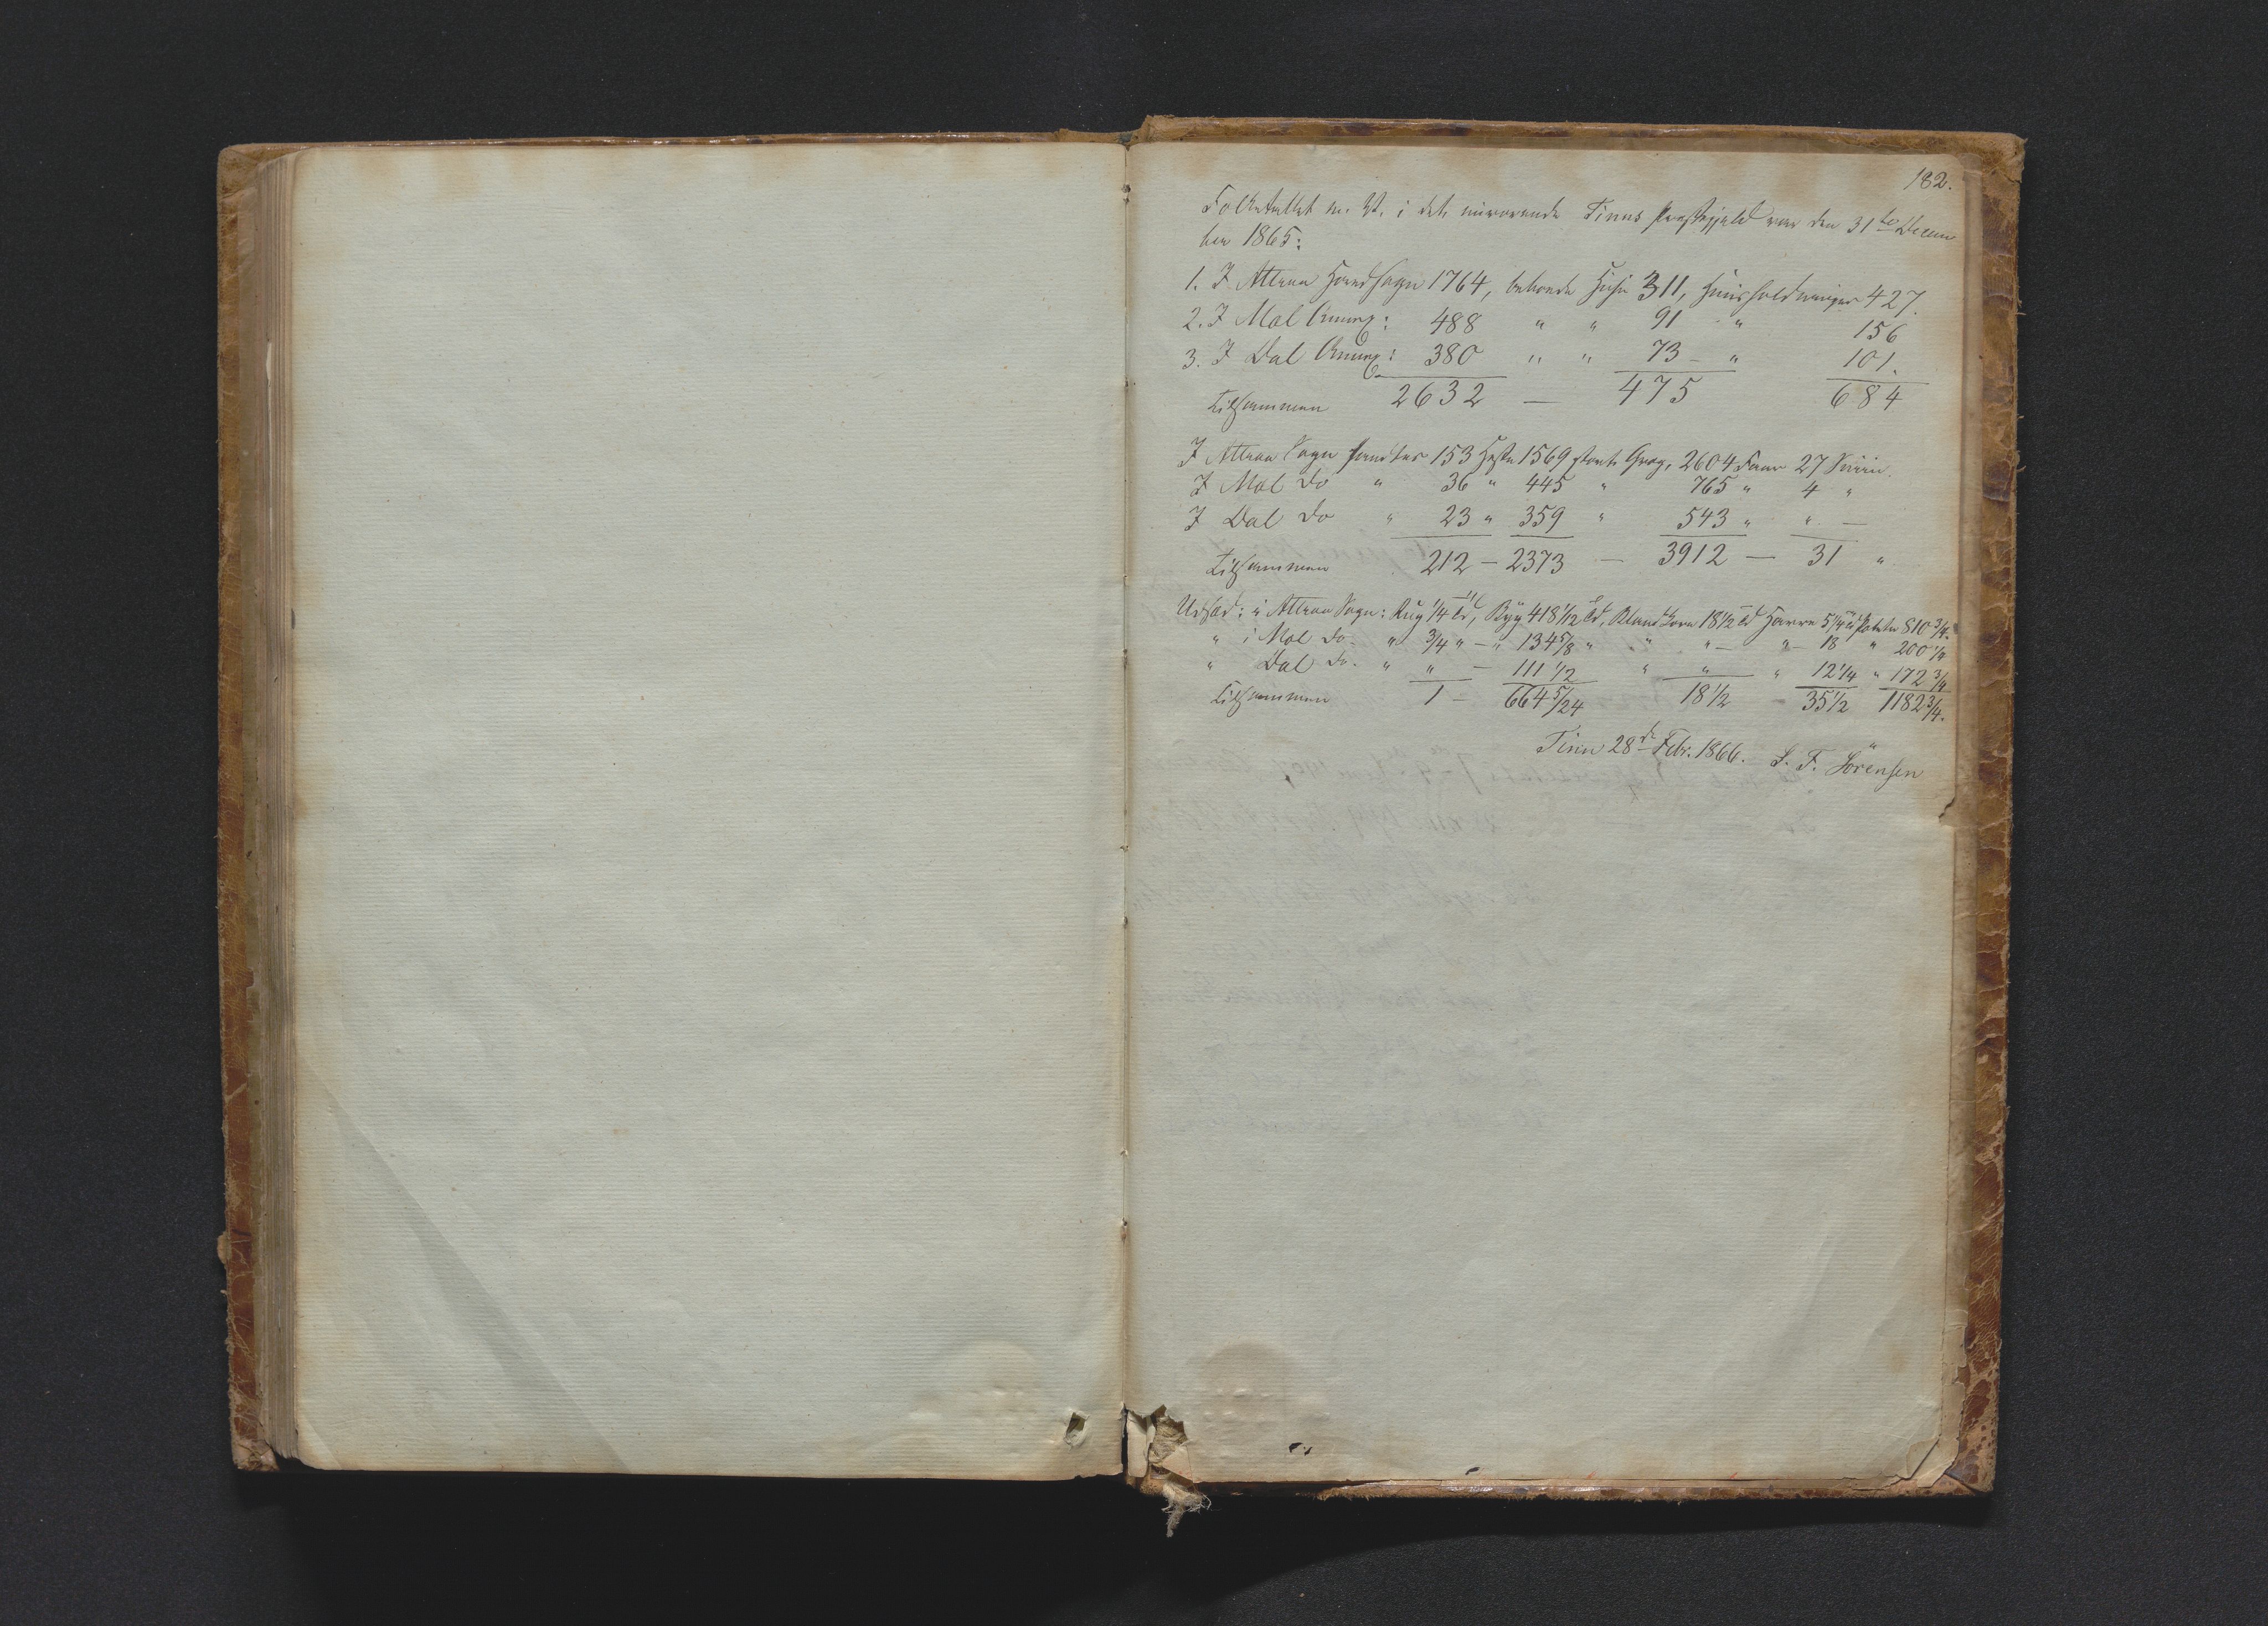 182.
Folketallet m. V. i det nuværende Tinns Præstegjeld var den 31te Decem
ber 1865:
1. I Attraa Hovedsogn 1764, beboede Huse 311, Huusholdninger 427.
2. I Mæl Annex: 488 " " 91 " 156
3. I Dal Annex: 380 " " 73 – " 101.
Tilsammen 2632 — 475 684
I Attraa Sogn fandtes 153 Heste 1569 stort Qvæg, 2604 Faar 27 Sviin.
I Mæl Do " 36 " 445 " 765 " 4 "
I Dal Do " 23 " 359 " 543 " " —
Tilsammen 212 — 2373 — 3912 — 31 "
Udsæd: i Attraa Sogn: Rug 1/4 Td, Byg 418 1/12 Td, Blandkorn 18 1/2 Td Havre 5 1/4 Td Poteter 810 3/4.
" i Mæl Do. " 3/4 " — " 134 5/8 " " " — " — 18 " 200 1/4
" Dal Do. " " — 111 1/2 " " " 12 1/4 " 172 3/4
Tilsammen 1 — 664 5/24 18 1/2 — 35 1/2 1182 3/4.
Tinn 28de Febr. 1866. S. F. Sörensen